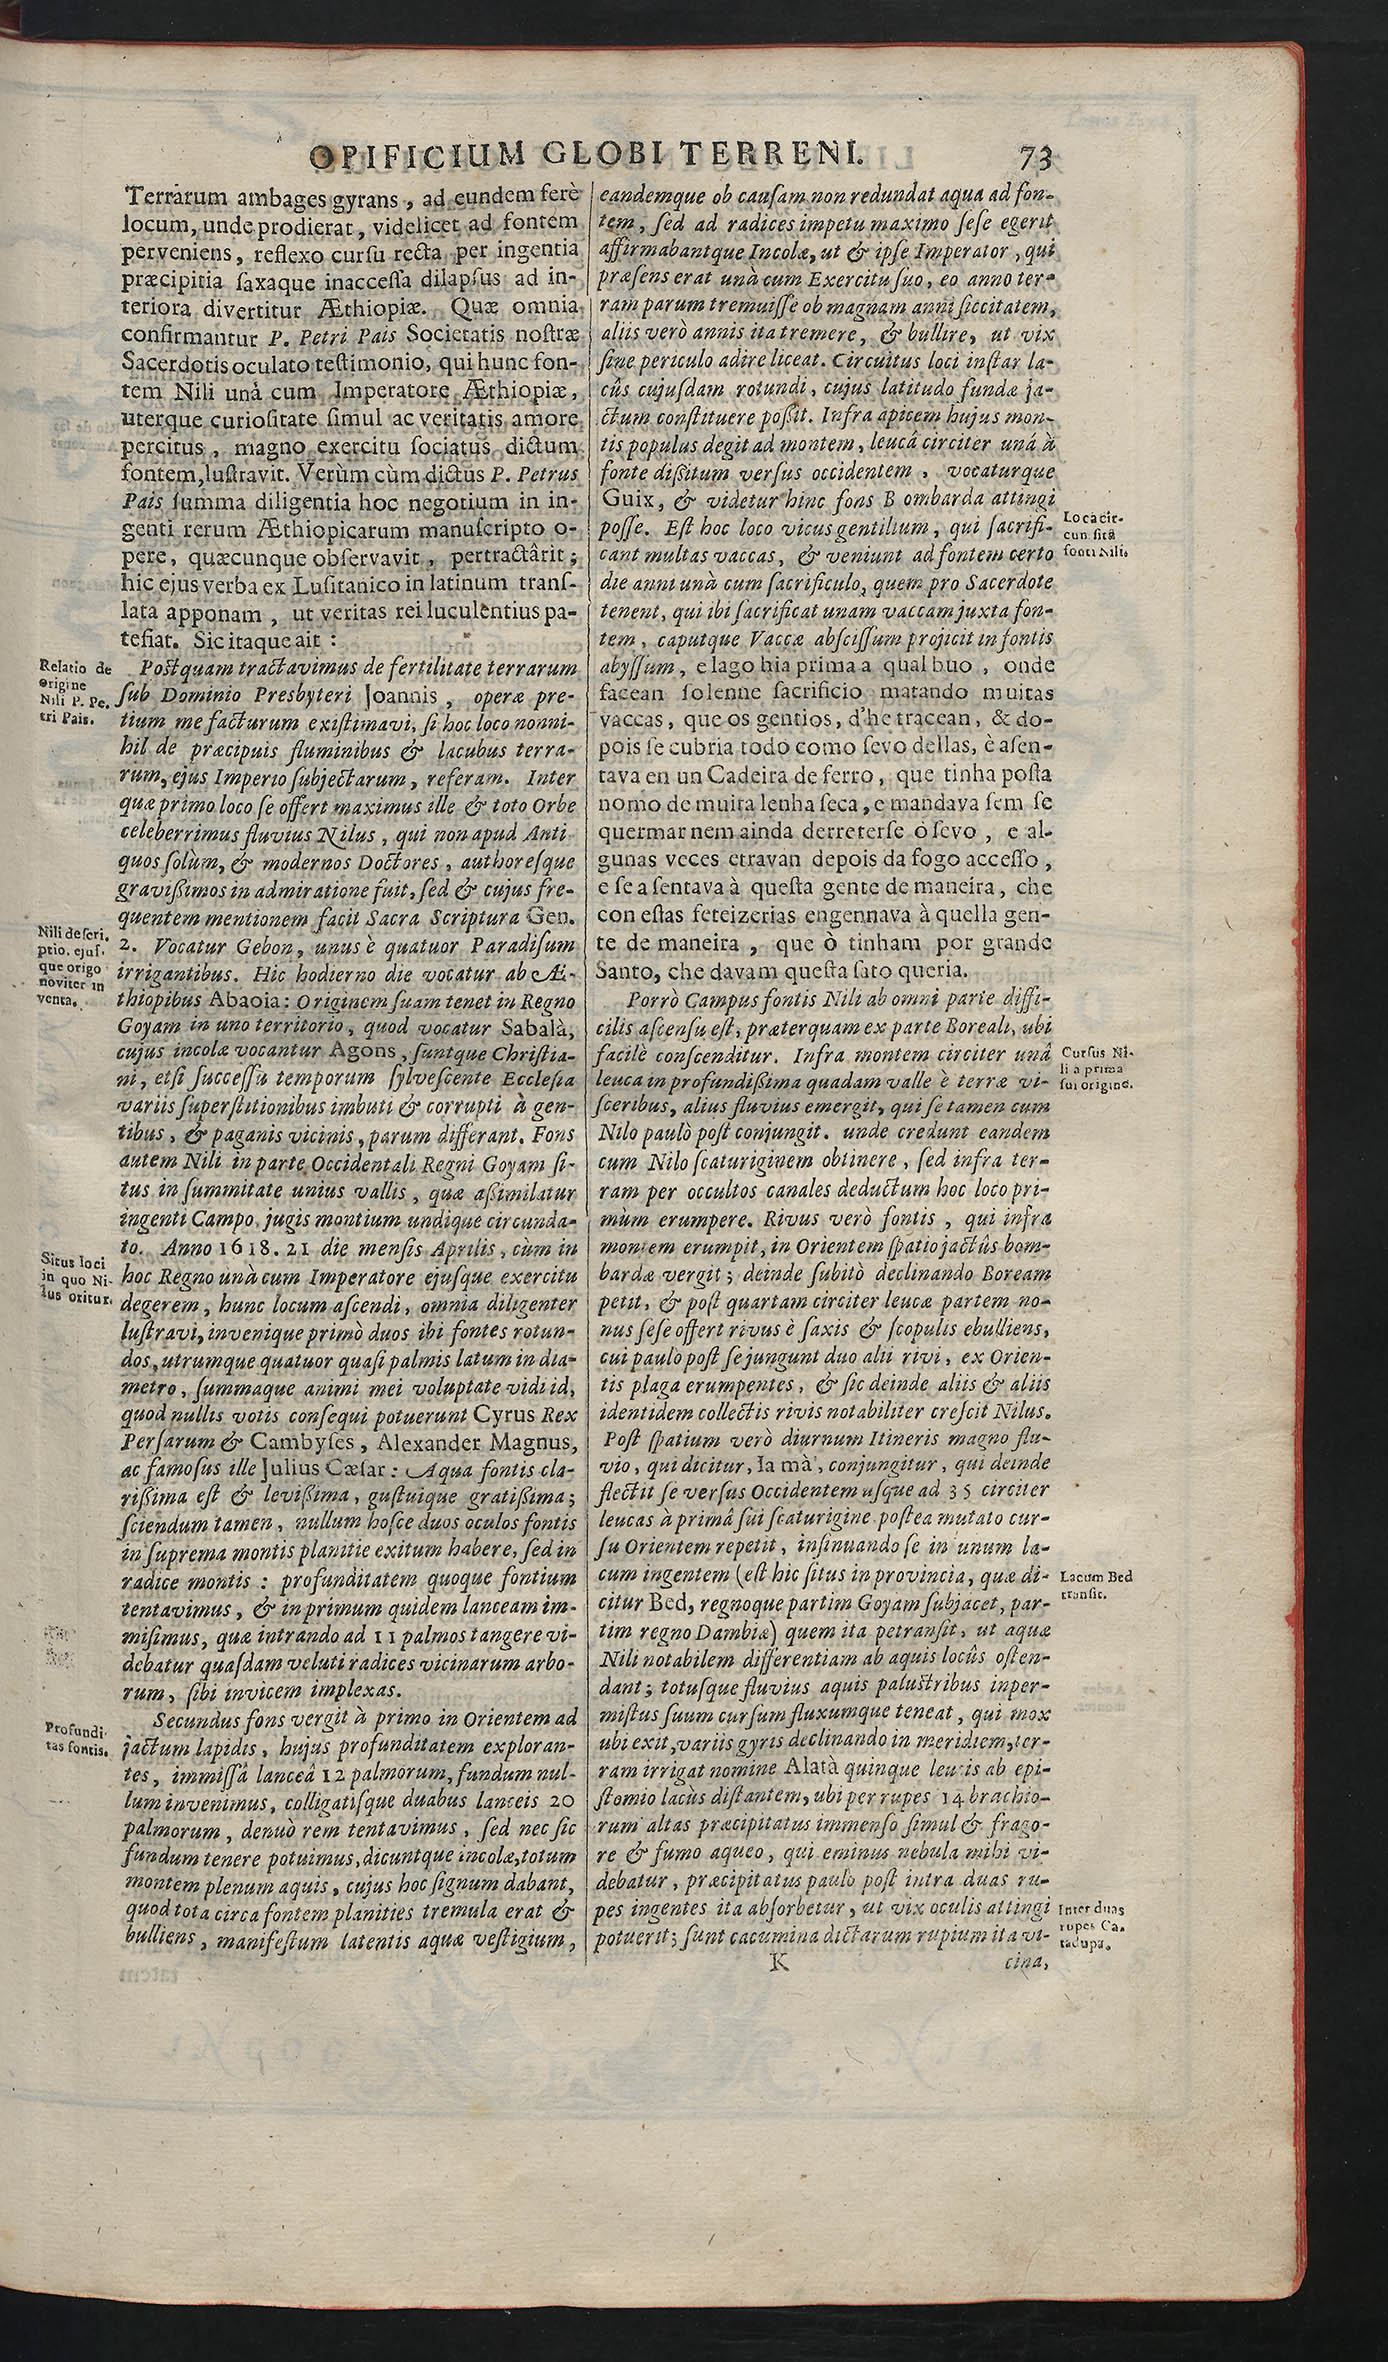 OPIFICIUM GLOBI TERRENI. 73
Terrarum ambages gyrans, ad eundem ferè
locum, unde prodierat, videlicet ad fontem
perveniens, reflexo cursu recta per ingentia
præcipitia saxaque inaccessa dilapsus ad in-
teriora divertitur Æthiopiæ. Quæ omnia
confirmantur P. Petri Pais Societatis nostræ
Sacerdotis oculato testimonio, qui hunc fon-
tem Nili unà cum Imperatore Æthiopiæ,
uterque curiositate simul ac veritatis amore
percitus, magno exercitu sociatus dictum
fontem, lustravit. Verùm cùm dictus P. Petrus
Pais summa diligentia hoc negotium in in-
genti rerum Æthiopicarum manuscripto o-
pere, quæcunque observavit, pertractârit;
hic ejus verba ex Lusitanico in latinum trans-
lata apponam, ut veritas rei luculentius pa-
tefiat. Sic itaque ait:
Relatio de
origine
Nili P. Pe-
tri Pais.
Postquam tractavimus de fertilitate terrarum
sub Dominio Presbyteri Joannis, operæ pre-
tium me facturum existimavi, si hoc loco nonni-
hil de præcipuis fluminibus & lacubus terra-
rum, ejus Imperio subjectarum, referam. Inter
quæ primo loco se offert maximus ille & toto Orbe
celeberrimus fluvius Nilus, qui non apud Anti
quos solùm, & modernos Doctores, authoresque
gravissimos in admiratione fuit, sed & cujus fre-
quentem mentionem facit Sacra Scriptura Gen.
Nili descri-
ptio, ejus-
que origo
noviter in
venta.
2. Vocatur Gehon, unus è quatuor Paradisum
irrigantibus. Hic hodierno die vocatur ab Æ-
thiopibus Abaoia: Originem suam tenet in Regno
Goyam in uno territorio, quod vocatur Sabalà,
cujus incolæ vocantur Agons, suntque Christia-
ni, etsi successu temporum sylvescente Ecclesia
variis superstitionibus imbuti & corrupti à gen-
tibus, & paganis vicinis, parum differant. Fons
autem Nili in parte Occidentali Regni Goyam si-
tus in summitate unius vallis, quæ assimilatur
ingenti Campo, jugis montium undique circunda-
to. Anno 1618. 21 die mensis Aprilis, cùm in
Situs loci
in quo Ni-
lus oritur.
hoc Regno unà cum Imperatore ejusque exercitu
degerem, hunc locum ascendi, omnia diligenter
lustravi, invenique primò duos ibi fontes rotun-
dos, utrumque quatuor quasi palmis latum in dia-
metro, summaque animi mei voluptate vidi id,
quod nullis votis consequi potuerunt Cyrus Rex
Persarum & Cambyses, Alexander Magnus,
ac famosus ille Julius Cæsar: Aqua fontis cla-
rissima est & levissima, gustuique gratissima;
sciendum tamen, nullum hosce duos oculos fontis
in suprema montis planitie exitum habere, sed in
radice montis: profunditatem quoque fontium
tentavimus, & in primum quidem lanceam im-
misimus, quæ intrando ad 11 palmos tangere vi-
debatur quasdam veluti radices vicinarum arbo-
rum, sibi invicem implexas.
Profundi-
tas fontis.
Secundus fons vergit à primo in Orientem ad
jactum lapidis, hujus profunditatem exploran-
tes, immissâ lanceâ 12 palmorum, fundum nul-
lum invenimus, colligatisque duabus lanceis 20
palmorum, denuò rem tentavimus, sed nec sic
fundum tenere potuimus, dicuntque incolæ, totum
montem plenum aquis, cujus hoc signum dabant,
quod tota circa fontem planities tremula erat &
bulliens, manifestum latentis aquæ vestigium,
eandemque ob causam non redundat aqua ad fon-
tem, sed ad radices impetu maximo sese egerit
affirmabantque Incolæ, ut & ipse Imperator, qui
præsens erat unà cum Exercitu suo, eo anno ter-
ram parum tremuisse ob magnam anni siccitatem,
aliis verò annis ita tremere, & bullire, ut vix
sine periculo adire liceat. Circuitus loci instar la-
cûs cujusdam rotundi, cujus latitudo fundæ ja-
ctum constituere possit. Infra apicem hujus mon-
tis populus degit ad montem, leucâ circiter unâ à
fonte dissitum versus occidentem, vocaturque
Guix, & videtur hinc fons B ombarda attingi
posse. Est hoc loco vicus gentilium, qui sacrifi-
cant multas vaccas, & veniunt ad fontem certo
Loca cir-
cun sita
fonti Nili.
die anni unà cum sacrificulo, quem pro Sacerdote
tenent, qui ibi sacrificat unam vaccam juxta fon-
tem, caputque Vaccæ abscissum projicit in fontis
abyssum, e lago hia prima a qual buo, onde
facean solenne sacrificio matando muitas
vaccas, que os gentios, d'he tracean, & do-
pois se cubria todo como sevo dellas, è asen-
tava en un Cadeira de ferro, que tinha posta
nomo de muita lenha seca, e mandava sem se
quermar nem ainda derreterse ò sevo, e al-
gunas veces etravan depois da fogo accesso,
e se a sentava à questa gente de maneira, che
con estas feteizerias engennava à quella gen-
te de maneira, que ò tinham por grande
Santo, che davam questa sato queria.
Porrò Campus fontis Nili ab omni parte diffi-
cilis ascensu est, præterquam ex parte Boreali, ubi
facilè conscenditur. Infra montem circiter unâ
leuca in profundissima quadam valle è terræ vi-
sceribus, alius fluvius emergit, qui se tamen cum
Cursus Ni-
li a prima
sui origine.
Nilo paulò post conjungit. unde credunt eandem
cum Nilo scaturiginem obtinere, sed infra ter-
ram per occultos canales deductum hoc loco pri-
mùm erumpere. Rivus verò fontis, qui infra
montem erumpit, in Orientem spatio jactûs bom-
bardæ vergit; deinde subitò declinando Boream
petit, & post quartam circiter leucæ partem no-
nus sese offert rivus è saxis & scopulis ebulliens,
cui paulò post se jungunt duo alii rivi, ex Orien-
tis plaga erumpentes, & sic deinde aliis & aliis
identidem collectis rivis notabiliter crescit Nilus.
Post spatium verò diurnum Itineris magno flu-
vio, qui dicitur, Ia mà, conjungitur, qui deinde
flectit se versus Occidentem usque ad 35 circiter
leucas à primâ sui scaturigine postea mutato cur-
su Orientem repetit, insinuando se in unum la-
cum ingentem (est hic situs in provincia, quæ di-
citur Bed, regnoque partim Goyam subjacet, par-
Lacum Bed
transit.
tim regno Dambiæ) quem ita petransit, ut aquæ
Nili notabilem differentiam ab aquis locûs osten-
dant; totusque fluvius aquis palustribus inper-
mistus suum cursum fluxumque teneat, qui mox
ubi exit, variis gyris declinando in meridiem, ter-
ram irrigat nomine Alatà quinque leucis ab epi-
stomio lacûs distantem, ubi per rupes 14 brachio-
rum altas præcipitatus immenso simul & frago-
re & fumo aqueo, qui eminus nebula mihi vi-
debatur, præcipitatus paulò post intra duas ru-
pes ingentes ita absorbetur, ut vix oculis attingi
potuerit; sunt cacumina dictarum rupium ita vi-
Inter duas
rupes Ca-
tadupa.
K cina,